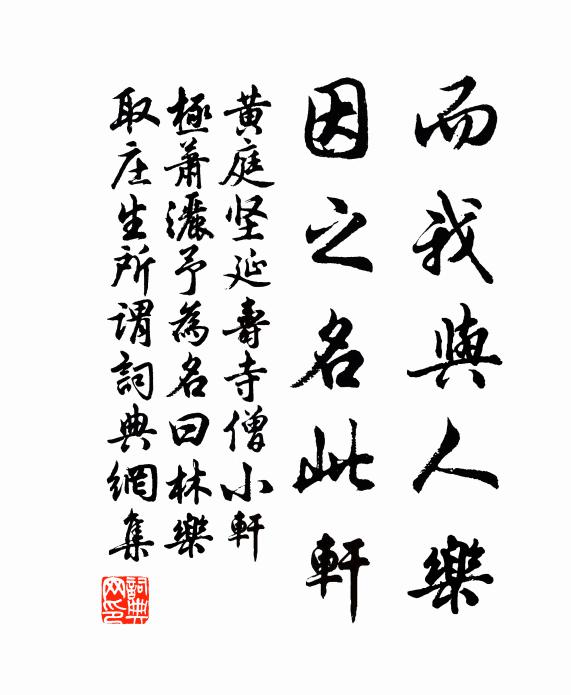 而我與人樂
因之名此軒
黄庭坚延壽寺僧小軒
極蕭灑予為名曰林樂
取庄生所謂詞典網集
詞典
网印